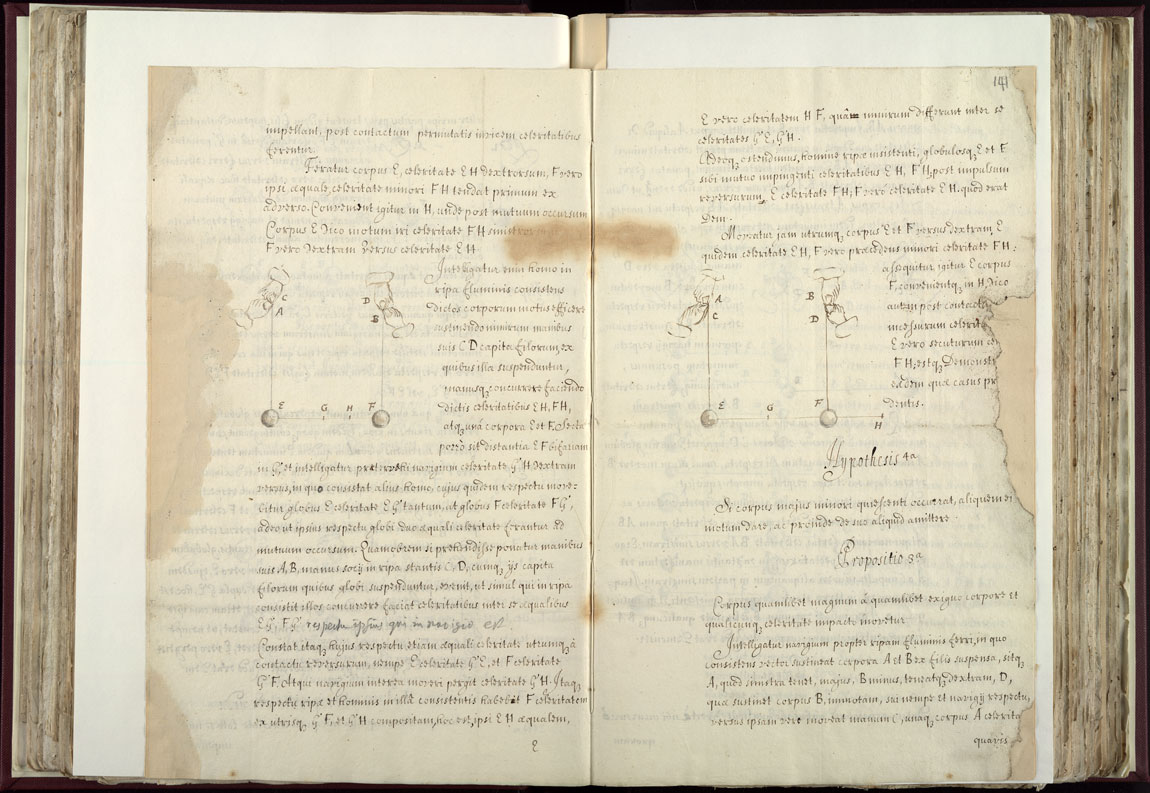 impellant, post contactum permutatis invicem celeritatibus
ferentur.
Feratur corpus E, celeritate EH dextrorsum, F vero
ipsi æquale, celeritate minori FH tendat primum ex
adverso. Convenient igitur in H, unde post mutuum occursum
Corpus E dico motum iri celeritate FH sinistror
F vero dextram versus celeritate EH
Intelligatur enim homo in
ripa fluminis consistens
dictos corporum motus efficere
sustinendo nimirum manibus
suis C D capita filorum, ex
quibus illa suspenduntur,
manusq, concurrere faciendo
dictis celeritatibus EH, FH,
atq, unà corpora E et F. Secta
porrò sit distantia EF bifariam
C
A
D
B
E
G
H
F
in G, et intelligatur prætervehi navigium celeritate GH dextram
versus, in quo consistat alius homo, cujus quidem respectu move-
bitur globus E celeritate EG tantum, at globus F celeritate FG,
adeo ut ipsius respectu globi duo æquali celeritate ferantur ad
mutuum occursum. Quamobrem si prehendisse ponatur manibus
suis A, B, manus socij in ripa stantis C, D, cumq, ijs capita
filorum quibus globi suspenduntur, eveniet, ut simul qui in ripa
consistit illos concurrere faciat celeritatibus inter se æqualibus
EG, FG respectu ipsius qui in navigio est
Constat itaq, hujus respectu etiam æquali celeritate utrumq, à
contactu reversurum, nempe E celeritate GE, et F celeritate
GF. Atqui navigium interea moveri pergit celeritate GH. Itaq,
respectu ripæ et hominis in illa consistentis habebit F celeritatem
ex utrisq, GF, et GH compositam, hoc est, ipsi EH æqualem,
E
141
E vero celeritatem HF, quâ nimirum differunt inter se
celeritates GE, GH.
Adeoq, ostendimus, homini ripæ insistenti, globulosq, E et F
sibi mutuo impingenti celeritatibus EH, FH, post impulsum
reversurum E celeritate FH, F vero celeritate EH. quod erat
dem.
Moveatur jam utrumq, corpus E et F versus dextram, E
quidem celeritate EH, F vero præcedens minori celeritate FH.
assequitur igitur E corpus
F, convenientq, in H. dico
autem post contact
incessurum celerit
E vero secuturum ce
FH, estq, Demonstr
eadem quæ casus pr
dentis.
A
C
B
D
E
G
F
H
Hypothesis 4a
Si corpus majus minori quiescenti occurrat, aliquem ei
motum dare, ac proinde de suo aliquid amittere.
Propositio 3a
Corpus quamlibet magnum à quamlibet exiguo corpore et
qualicunq, celeritate impacto movetur
Intelligatur navigium propter ripam fluminis ferri, in quo
consistens vector sustineat corpora A et B ex filis suspensa, sitq,
A, quod sinistra tenet, majus, B minus, teneatq, dextram, D,
quæ sustinet corpus B, immotam, sui nempe et navigij respectu,
versus ipsam vero moveat manum C, unàq, corpus A celerita
quavis